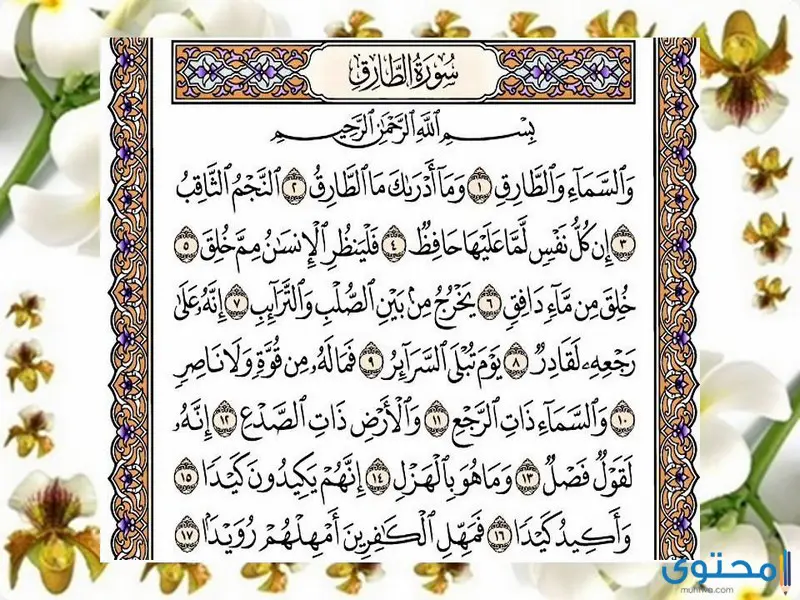 سُورَةُ الطَّارِقِ
بِسْمِ اللَّهِ الرَّحْمَٰنِ الرَّحِيمِ
وَالسَّمَاءِ وَالطَّارِقِ ١ وَمَا أَدْرَىٰكَ مَا الطَّارِقُ ٢ النَّجْمُ الثَّاقِبُ
٣ إِن كُلُّ نَفْسٍ لَّمَّا عَلَيْهَا حَافِظٌ ٤ فَلْيَنظُرِ الْإِنسَٰنُ مِمَّ خُلِقَ ٥
خُلِقَ مِن مَّاءٍ دَافِقٍ ٦ يَخْرُجُ مِنۢ بَيْنِ الصُّلْبِ وَالتَّرَائِبِ ٧ إِنَّهُۥ عَلَىٰ
رَجْعِهِۦ لَقَادِرٌ ٨ يَوْمَ تُبْلَى السَّرَائِرُ ٩ فَمَا لَهُۥ مِن قُوَّةٍ وَلَا نَاصِرٍ
١٠ وَالسَّمَاءِ ذَاتِ الرَّجْعِ ١١ وَالْأَرْضِ ذَاتِ الصَّدْعِ ١٢ إِنَّهُۥ
لَقَوْلٌ فَصْلٌ ١٣ وَمَا هُوَ بِالْهَزْلِ ١٤ إِنَّهُمْ يَكِيدُونَ كَيْدًا ١٥
وَأَكِيدُ كَيْدًا ١٦ فَمَهِّلِ الْكَٰفِرِينَ أَمْهِلْهُمْ رُوَيْدًۢا ١٧
محتوى
muhtwa.com